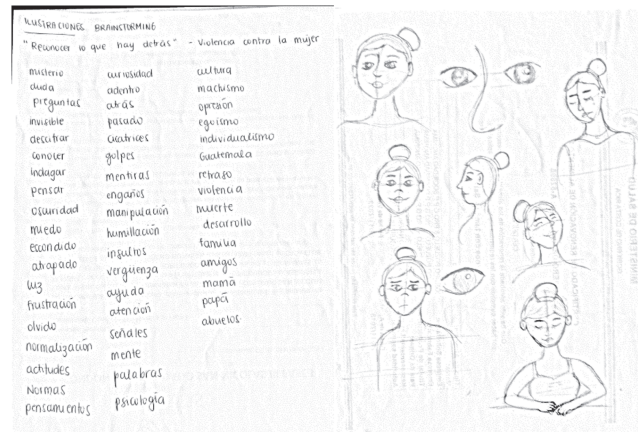 ILUSTRACIONES BRAINSTORMING
"Reconocer lo que hay detrás" - Violencia contra la mujer
misterio
duda
preguntas
invisible
descifrar
conocer
indagar
pensar
oscuridad
miedo
escondido
atrapado
luz
frustración
olvido
normalización
actitudes
Normas
pensamientos
curiosidad
adentro
atrás
pasado
cicatrices
golpes
mentiras
engaños
manipulación
humillación
insultos
vergüenza
ayuda
atención
señales
mente
palabras
psicología
cultura
machismo
opresión
egoísmo
individualismo
Guatemala
retraso
violencia
muerte
desarrollo
familia
amigos
mamá
papá
abuelos
MINISTERIO DE SALUD